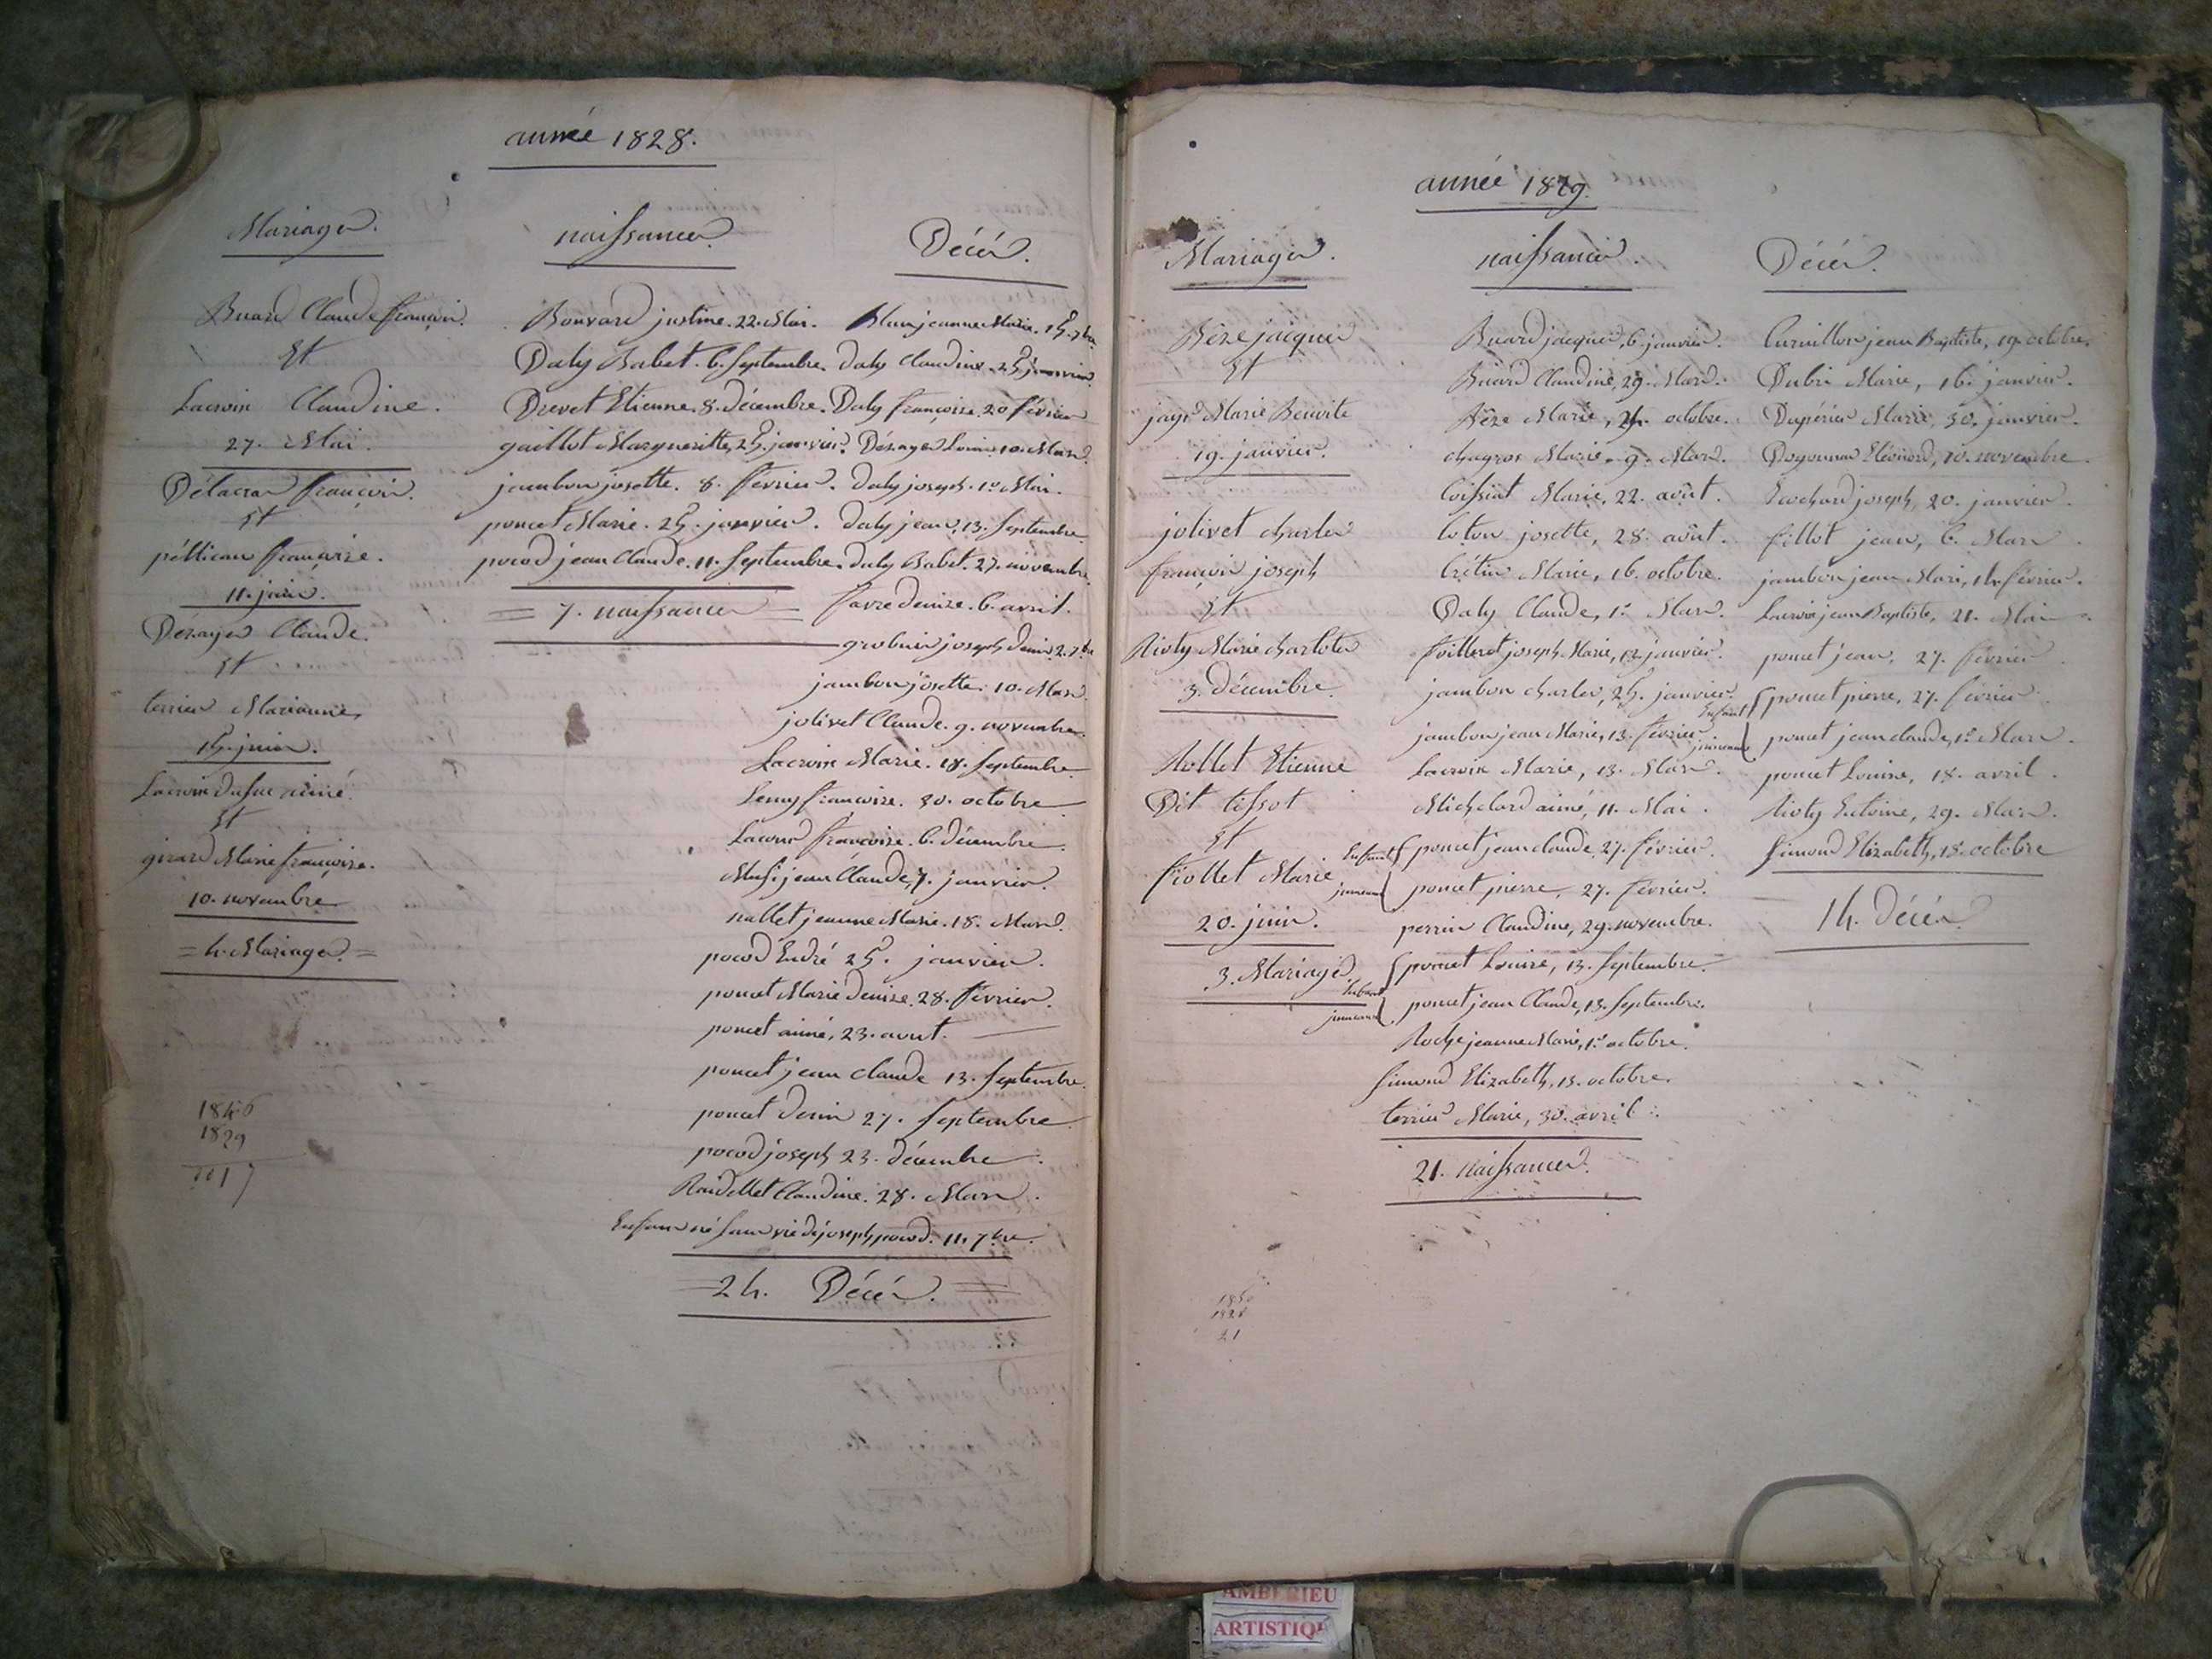 année 1828.
Mariages.
Buard Claude françois.
Et
Lacroix Claudine.
27. Mai.
Délacra françois.
Et
péllican françoise.
11. juin.
Désayes Claude.
Et
terrier Marianne,
15. juin.
Lacroix aimé.
Et
girard Marie françoise.
10. novembre
= 4. Mariages. =
1846
1829
naissances.
Bouvard justine. 22. Mai.
Daly Babet. 6. Septembre.
Drevet Etienne. 8. décembre.
gaillot Margueritte, 25. janvier.
jambon josette. 8. février.
poncet Marie. 25. janvier.
pocod jean Claude. 11. Septembre.
= 7. naissances =
Décés.
jeanne Marie. 15. 7bre
Daly Claudine. 25. janvier.
Daly françoise. 20 février
Désayes Louis. 10. Mars.
Daly joseph. 1er Mai.
Daly jean, 13. Septembre
Daly Babet. 27. novembre.
favre denise. 6. avril.
joseph denis. 2. 7bre
jambon josette. 10. Mars.
jolivet Claude. 9. novembre.
Lacroix Marie. 18. Septembre
françoise. 30. octobre
françoise. 6. décembre.
jean Claude, 7. janvier.
nallet jeanne Marie. 18. Mars.
pocod André 25. janvier.
poncet Marie denise. 28. février.
poncet aimé, 23. aout.
poncet jean claude 13. Septembre.
poncet denis 27. Septembre
pocod joseph 23. décembre.
Claudine. 28. Mars.
Enfant né sans vie de joseph pocod. 11. 7bre.
= 24. Décés. =
année 1829.
Mariages.
Bèze jacques
Et
Marie Benoite
19. janvier.
jolivet charles
françois joseph
Et
Rioty Marie charlotte
3. décembre.
Rollet Etienne
Dit tissot
Et
fiollet Marie
20. juin.
3. Mariages
naissances.
Buard jacques, 6. janvier.
Buard Claudine, 29. Mars.
Bèze Marie, 24. octobre.
chagros Marie. 9. Mars.
Coissiat Marie, 22. août.
Coton josette, 28. août.
Crétin Marie, 16. octobre.
Daly Claude, 1er Mars.
joseph Marie, 13. janvier.
jambon charles, 25. janvier.
jambon jean Marie, 13. février.
Lacroix Marie, 13. Mars.
Michelard aimé, 11. Mai.
Enfants jumeaux { poncet jean claude, 27. février.
poncet pierre, 27. février.
perrin Claudine, 29. novembre.
Enfants jumeaux { poncet Louise, 13. Septembre.
poncet jean Claude, 13. Septembre.
Roche jeanne Marie, 1er octobre.
Simond Elizabeth, 15. octobre.
terrier Marie, 30. avril.
21. naissances.
Décés.
Curvillon jean Baptiste, 19. octobre.
Dubri Marie, 16. janvier.
Dupérier Marie, 30. janvier.
Eléonord, 10. novembre.
joseph, 20. janvier.
fillot jean, 6. Mars.
jambon jean Mari, 14. février.
Lacroix jean Baptiste, 21. Mai
poncet jean, 27. février
Enfants jumeaux { poncet pierre, 27. février
poncet jean claude, 1er Mars.
poncet Louise, 18. avril.
Rioty Antoine, 29. Mars.
Simond Elizabeth, 18. octobre
14. Décés
1850
1828
21
AMBERIEU
ARTISTIQ